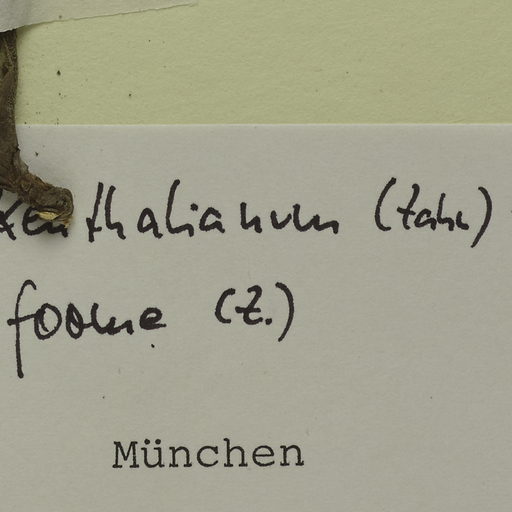 thalianum (Zahn)
forme (Z.)
München